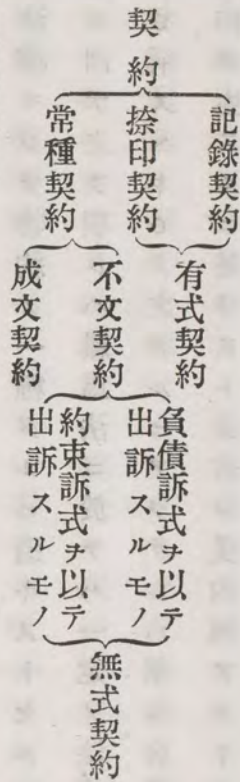 契約
記錄契約
捺印契約
常種契約
有式契約
不文契約
成文契約
負債訴式ヲ以テ
出訴スルモノ
約束訴式ヲ以テ
出訴スルモノ
無式契約